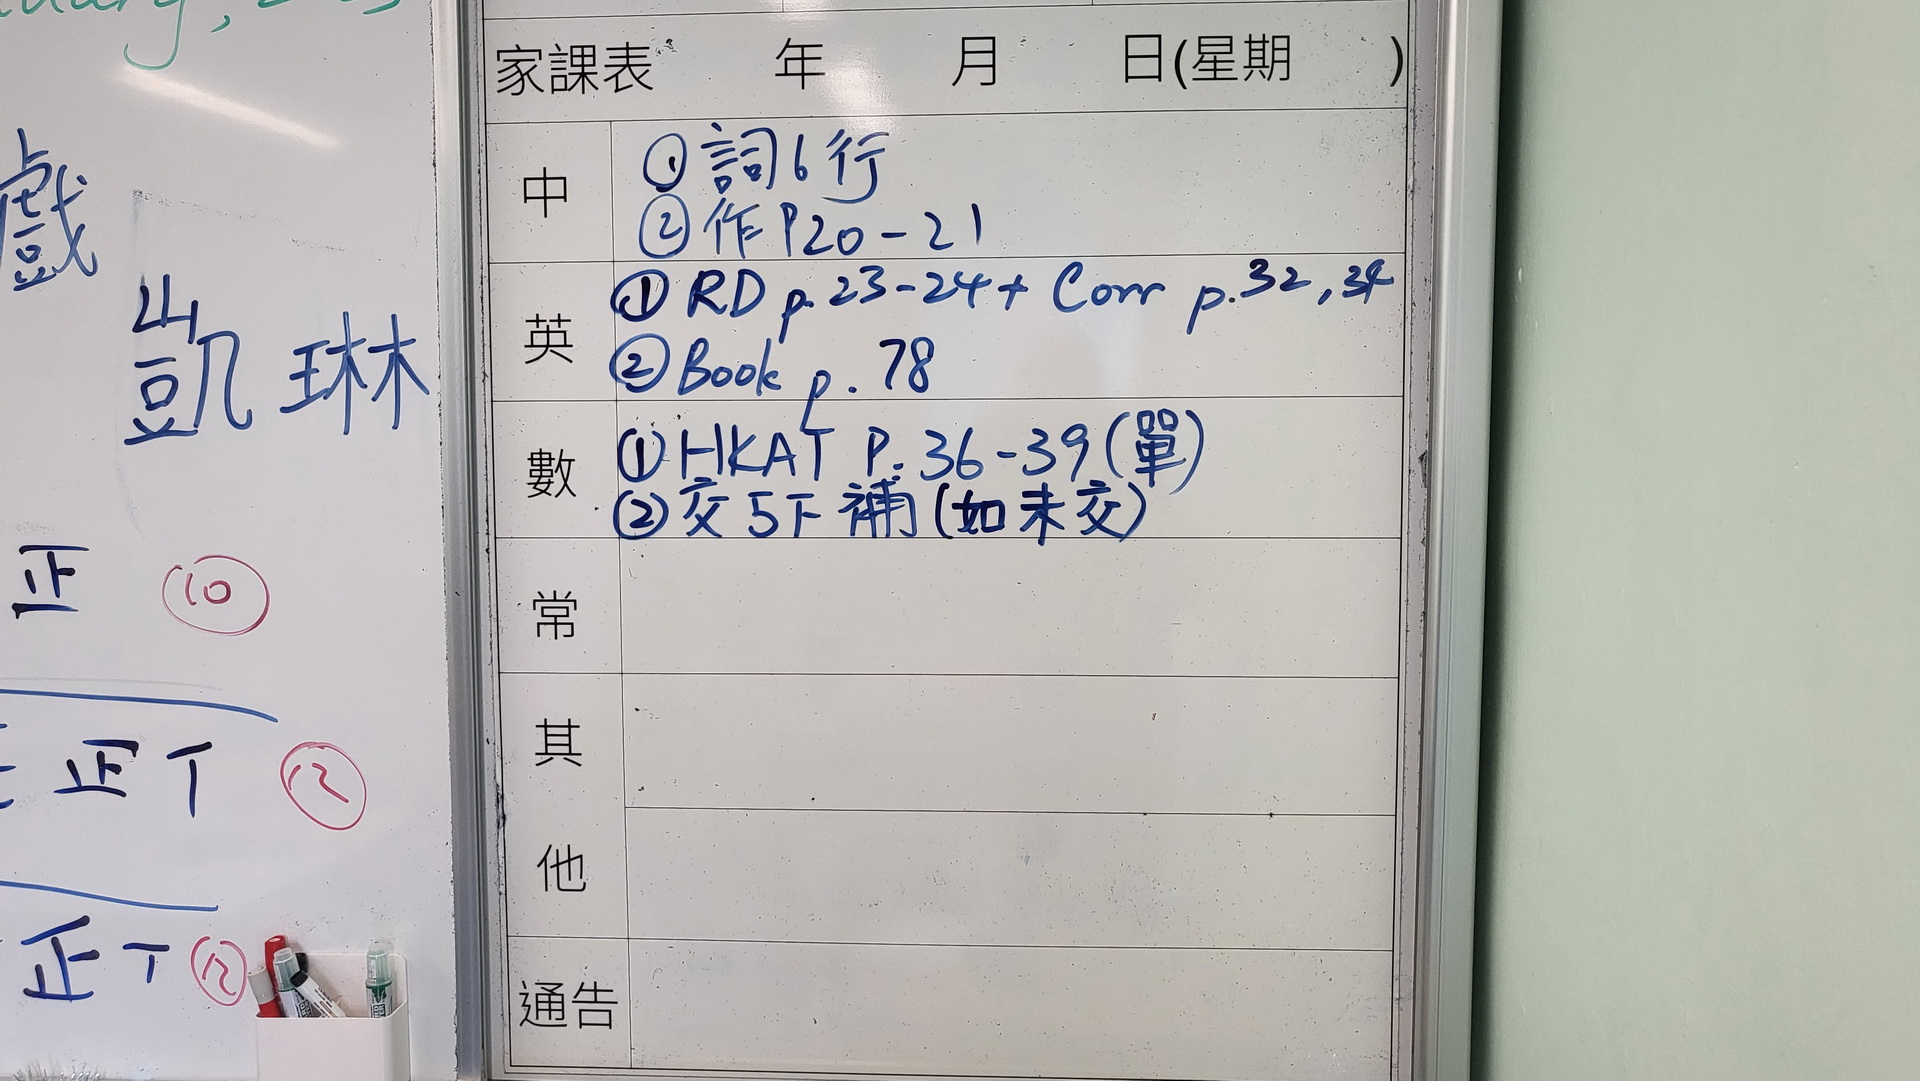 戲
凱琳
正 10
正 丅 12
正 丅 12
家課表 年 月 日(星期 )
中
① 詞6行
② 作P20-21
英
① RD p.23-24+ Corr p.32,34
② Book p.78
數
① HKAT P.36-39(單)
② 交5下補(如未交)
常
其
他
通告